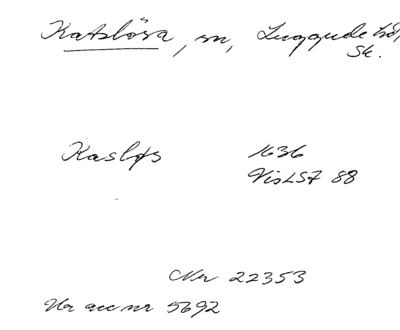 Katslösa, sn, Luggude hd,
Sk.
Kasløs 1636
VisLST 88
Nr 22353
Ur acc nr 5692